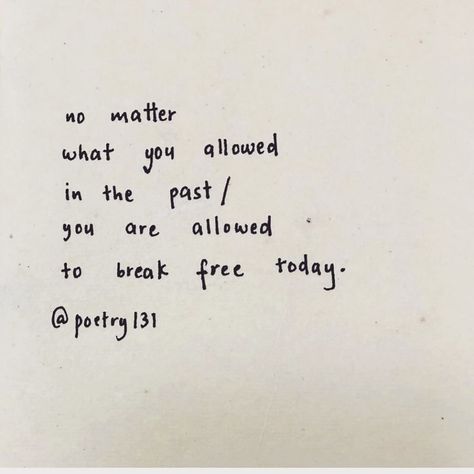 no matter
what you allowed
in the past/
you are allowed
to break free today.
@poetry131